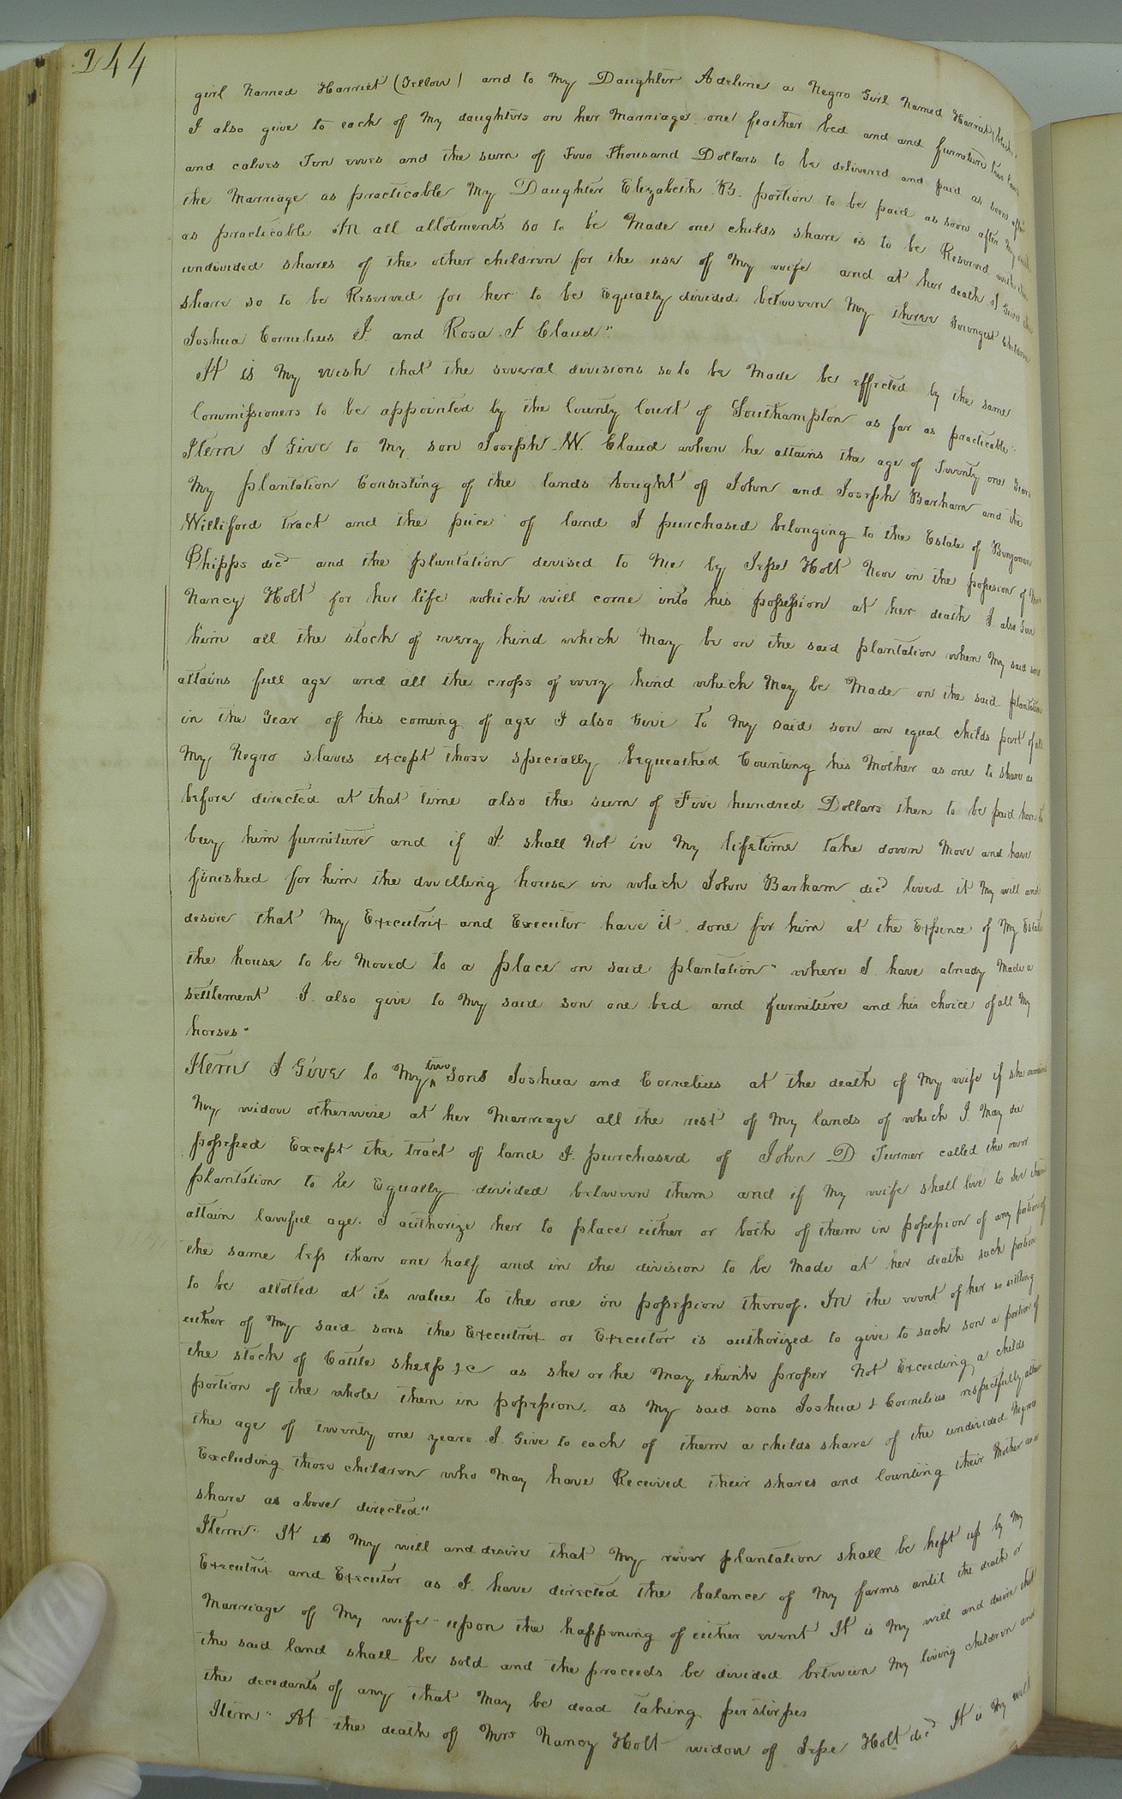 244
girl named Harriet (Yellow) and to my Daughter Adeline a negro Girl named Harriet
I also give to each of my daughters on her marriage one feather bed and and furniture
and calves Ten ewes and the sum of Two Thousand Dollars to be delivered and paid as soon after
the marriage as practicable My Daughter Elizabeth B. portion to be paid as soon after my
as practicable In all allotments so to be made one childs share is to be Reserved
undivided shares of the other children for the use of my wife and at her death I Give
share so to be Reserved for her to be Equally divided between my three youngest children
Joshua Cornelius J. and Rosa J Claud"
It is my wish that the several divisions so to be made be effected by the same
Commissioners to be appointed by the County Court of Southampton as far as practicable"
Item I Give to my son Joseph W. Claud when he attains the age of Twenty one years
my plantation Consisting of the lands bought of John and Joseph Barham and the
Williford tract and the piece of land I purchased belonging to the Estate of Benjamin
Phipps decd and the plantation devised to me by Jesse Holt now in the possession of
Nancy Holt for her life which will come into his possession at her death I also Give
him all the stock of every kind which may be on the said plantation when my said son
attains full age and all the crops of every kind which may be made on the said plantation
in the year of his coming of age I also Give to my said son an equal childs part of all
my negro slaves except those specially bequeathed Counting his Mother as one to share as
before directed at that time also the sum of Five hundred Dollars then to be paid him to
buy him furniture and if I shall not in my lifetime take down move and have
finished for him the dwelling house in which John Barham decd lived it my will and
desire that my Executrix and Executor have it done for him at the Expence of my Estate
the house to be moved to a place on said plantation where I have already made a
settlement I also give to my said son one bed and furniture and his choice of all my
horses"
Item I Give to my two sons Joshua and Cornelius at the death of my wife if she
my widow otherwise at her marriage all the rest of my lands of which I may die
possessed Except the tract of land I purchased of John D Turner called the river
plantation to be Equally divided between them and if my wife shall live to see them
attain lawful age. I authorize her to place either or both of them in possession of any portion of
the same less than one half and in the division to be made at her death such portion
to be allotted at its value to the one in possession thereof. In the event of her so settling
either of my said sons the Executrix or Executor is authorized to give to such son a portion of
the stock of Cattle sheep &c as she or he may think proper not Exceeding a childs
portion of the whole then in possession. as my said sons Joshua & Cornelius respectfully attain
the age of twenty one years I Give to each of them a childs share of the undivided negros
Excluding those children who may have Received their shares and Counting their Mother as a
share as above directed"
Item" It is my will and desire that my river plantation shall be kept up by my
Executrix and Executor as I have directed the balance of my farms until the death or
marriage of my wife upon the happening of either event It is my will and desire that
the said land shall be sold and the proceeds be divided between my living children and
the decedants of any that may be dead taking perstirpes
Item" At the death of Mrs Nancy Holt widow of Jesse Holt decd It is my will